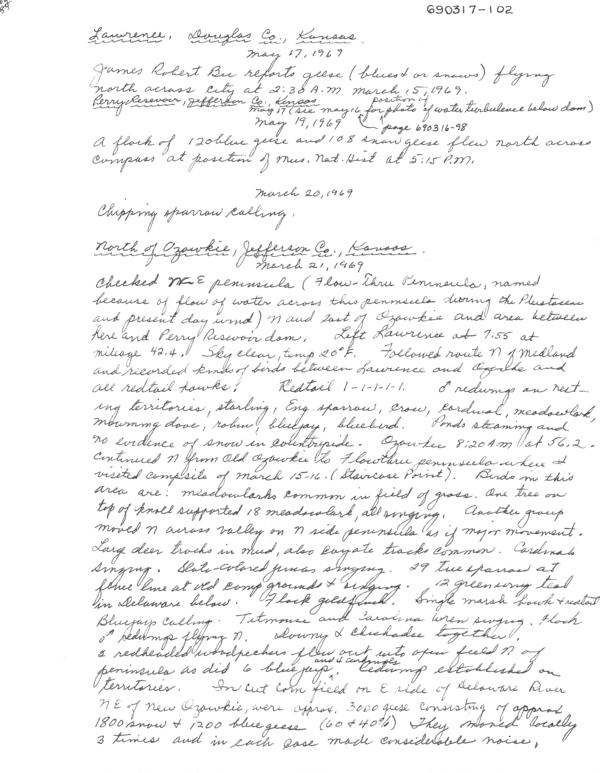 690317-102
Lawrence, Douglas Co., Kansas.
May 17, 1969
James Robert Bee reports geese (blues & or snows) flying
north across city at 2:30 A.M March, 15, 1969.
Perry Reservoir, Jefferson Co., Kansas
May 17 (see May 16 for position of photo of water turbulence below dam)
May 19, 1969 page 690316-98
A flock of 120 blue geese and 108 snow geese flew north across
campus at position of Mus. Nat. Hist at 5:15 P.M.
March 20, 1969
Chipping sparrow calling.
North of Ozawkie, Jefferson Co., Kansas.
March 21, 1969
Checked E peninsula (Flow-Thru Peninsula, named
because of flow of water across this peninsula during the Pleistocene
and present day wind) N and east of Ozawkie and area between
here and Perry Reservoir dam. Left Lawrence at 7:55 at
mileage 42.4. Sky clear, temp 20°F. Followed route N of Midland
and recorded kinds of birds between Lawrence and Ozawkie and
all redtail hawks. Redtail 1-1-1-1-1. ♂ redwings on nest-
ing territories, starling, Eng sparrow, crow, cardinal, meadowlark,
mourning dove, robin, bluejay, bluebird. Ponds steaming and
no evidence of snow in countryside. Ozawkie 8:20 A.M at 56.2.
Continued N from Old Ozawkie to Flowthru peninsula where I
visited campsite of March 15-16. (Staircase Point). Birds in this
area are: meadowlarks common in field of grass. One tree on
top of knoll supported 18 meadowlark, all singing. Another group
moved N across valley on N side peninsula as if major movement.
Large deer tracks in mud, also coyote tracks common. Cardinals
singing. Slate-colored juncos singing. 29 tree sparrow at
fence line at old camp grounds & singing. 12 greenwing teal
in Delaware below. Flock goldfinch. Single marsh hawk & redtail
Bluejays calling. Titmouse and Carolina wren singing. Flock
♂ redwings flying N. Downy & Chickadee together.
2 redheaded woodpeckers flew out into open field N of
peninsula as did 6 bluejays. Redwing established on
territories. In cut corn field on E side of Delaware River
NE of New Ozawkie, were approx. 3000 geese consisting of approx
1800 snow & 1200 blue geese (60 & 40%) They moved locally
3 times and in each case made considerable noise,